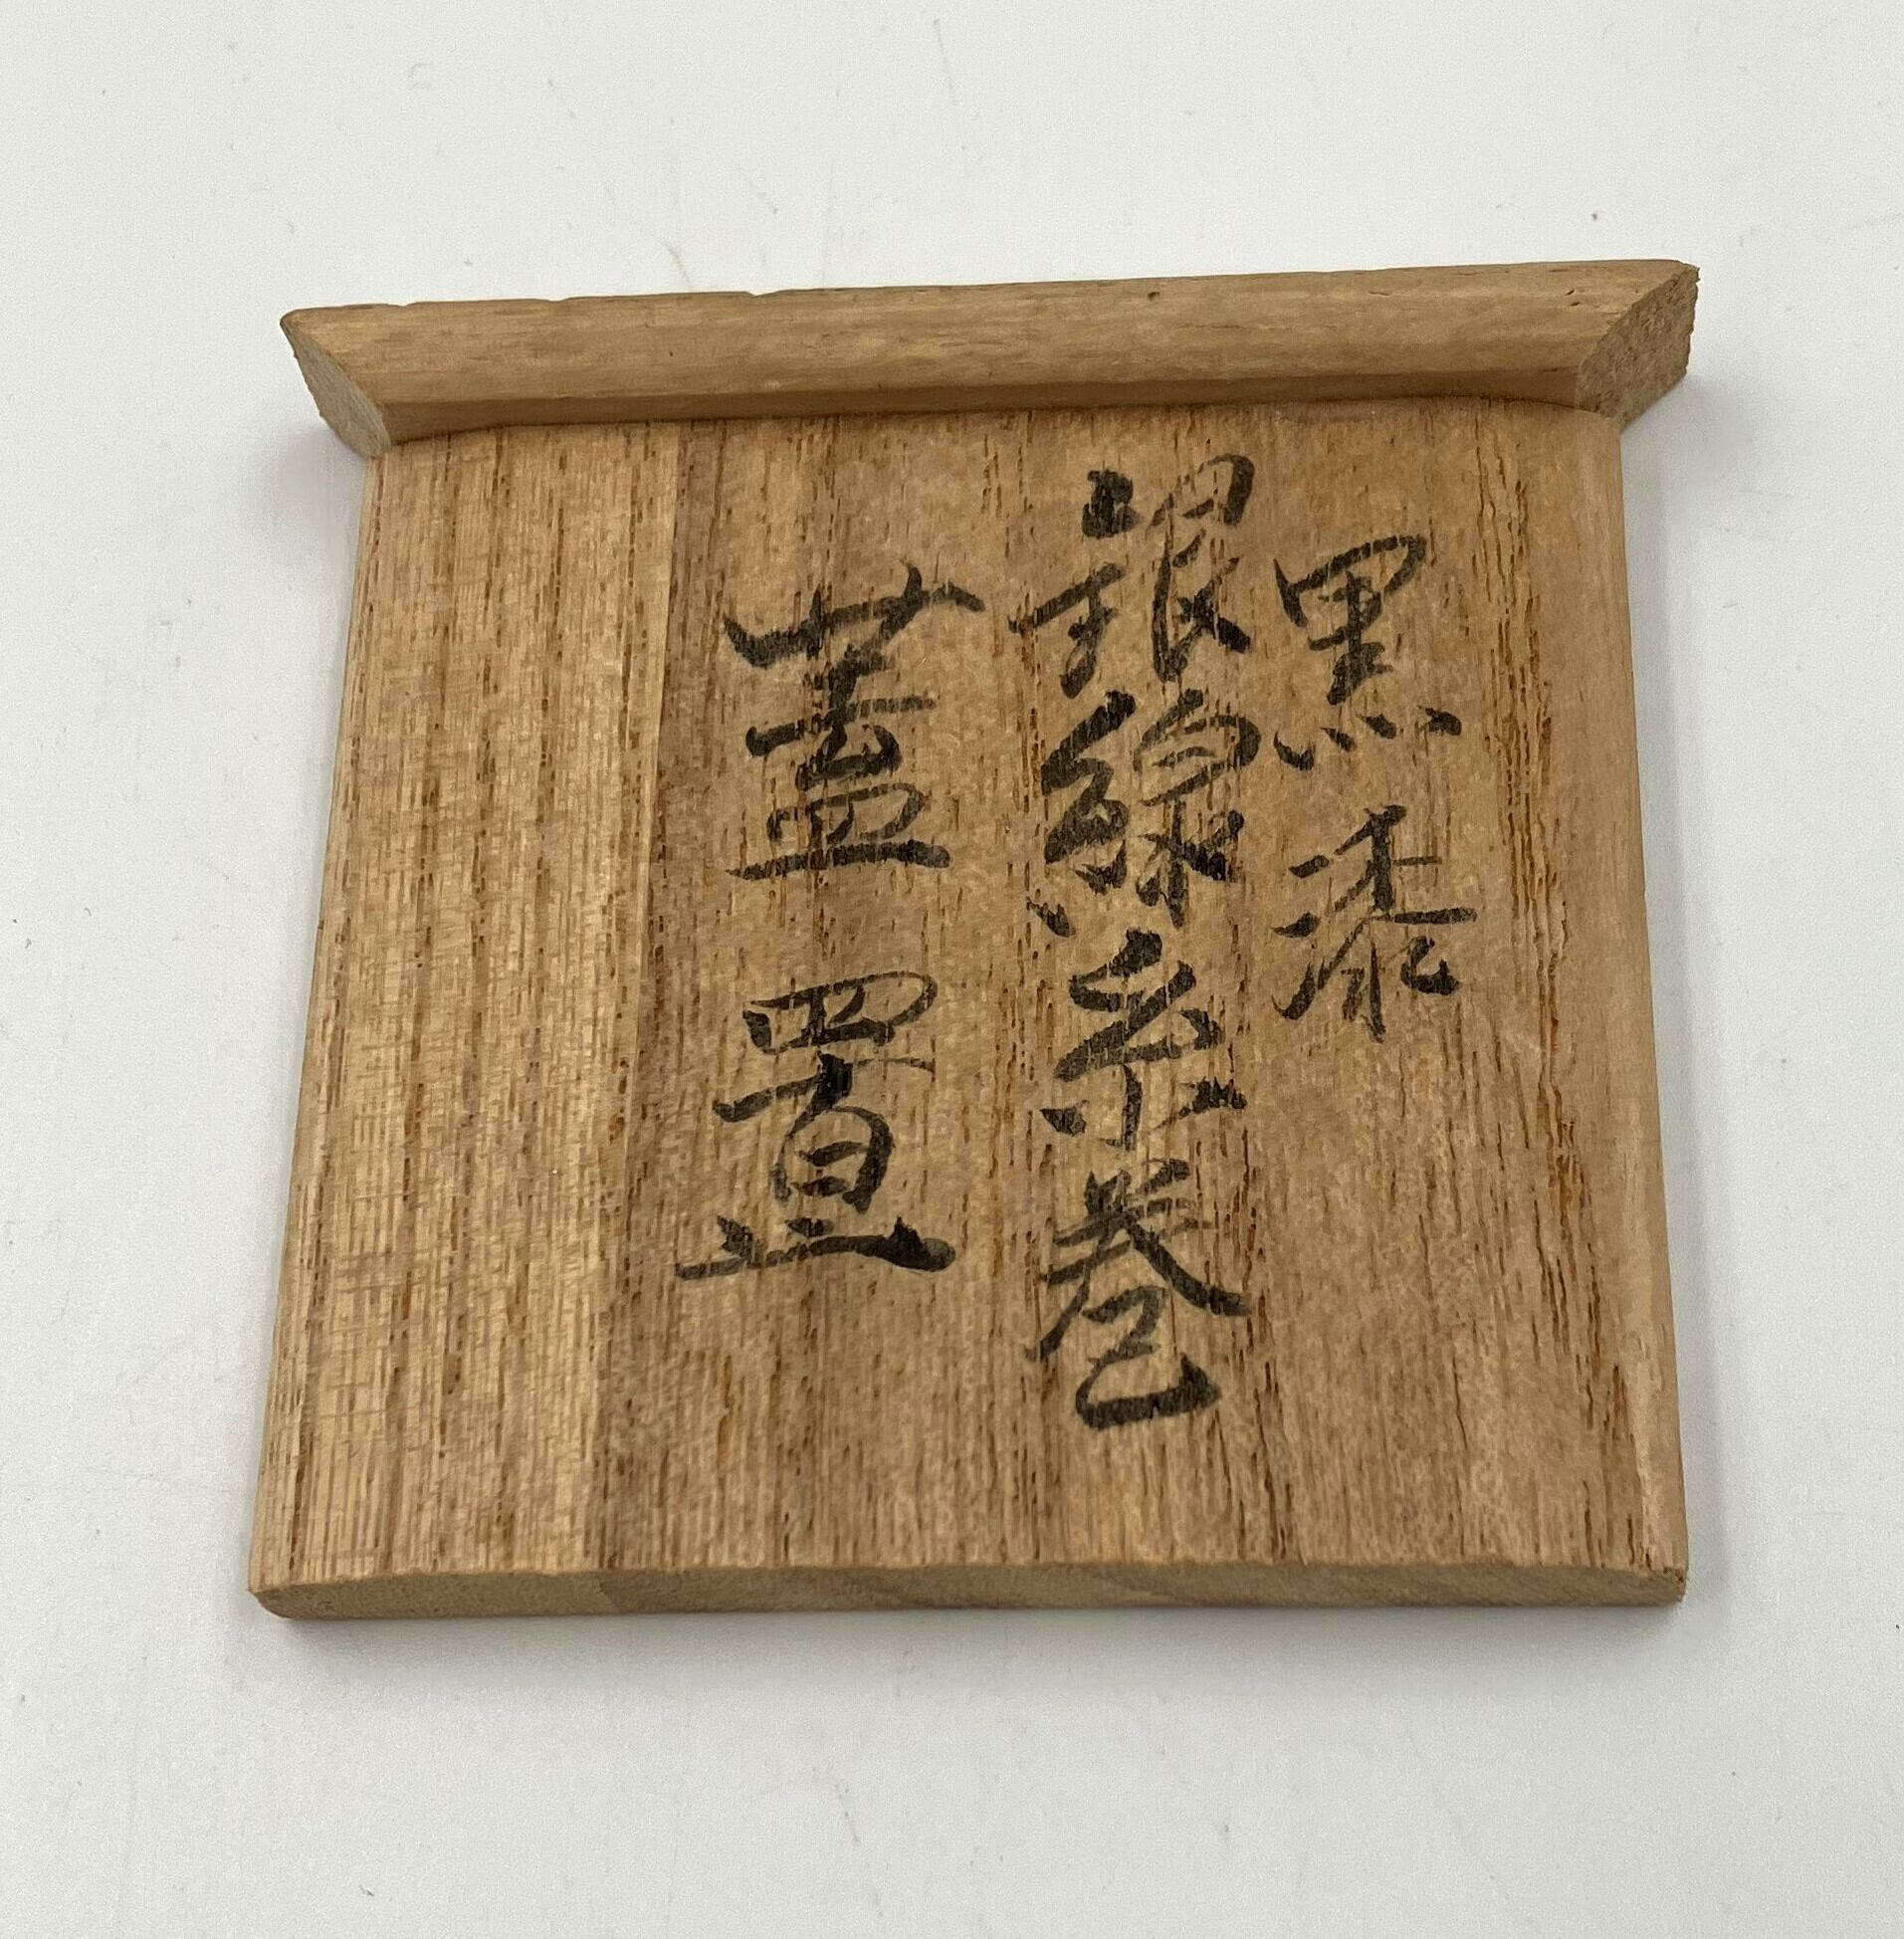 黒漆
銀線糸巻
蓋置